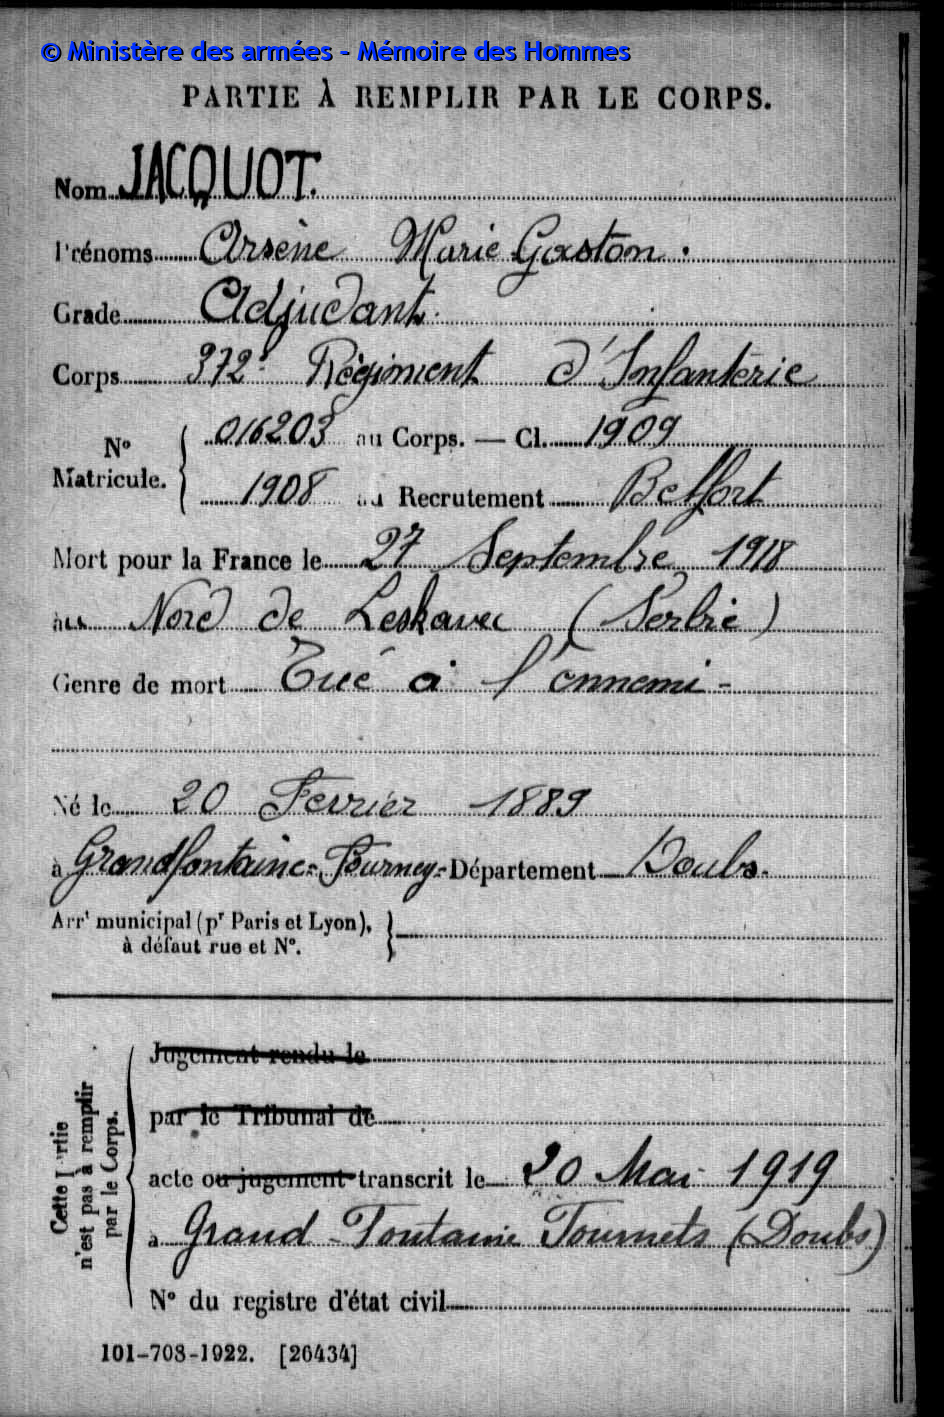 © Ministère des armées - Mémoire des Hommes
PARTIE À REMPLIR PAR LE CORPS.
Nom JACQUOT.
Prénoms Arsène Marie Gaston.
Grade Adjudant.
Corps 372e Régiment d'Infanterie
N° Matricule. { 016203 au Corps. — Cl. 1909
1908 au Recrutement Belfort
Mort pour la France le 27 Septembre 1918
au Nord de Leskavec (Serbie)
Genre de mort Tué à l'ennemi -
Né le 20 Fevrier 1889
à Grandfontaine-Fourney-Département Doubs.
Arrt municipal (pr Paris et Lyon), }
à défaut rue et N°.
Cette Partie n'est pas à remplir par le Corps.
Jugement rendu le
par le Tribunal de
acte ou jugement transcrit le 20 Mai 1919
à Grand-Fontaine Fournets (Doubs)
N° du registre d'état civil
101-708-1922. [26434]